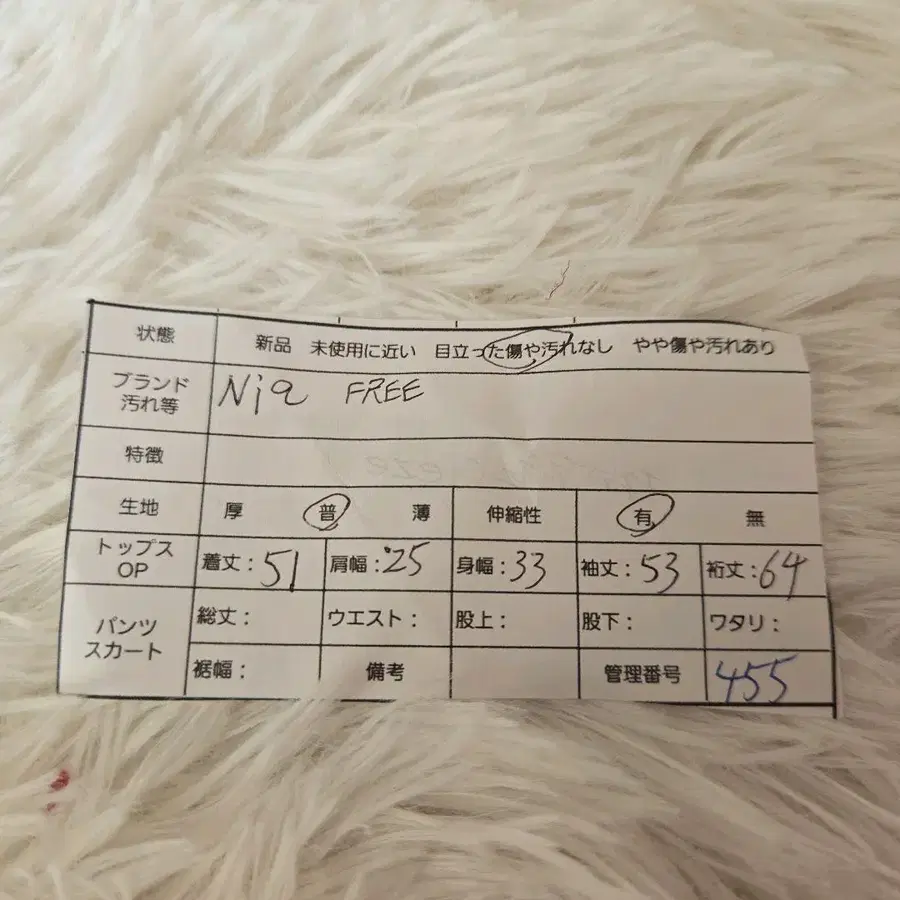 状態 新品 未使用に近い 目立った傷や汚れなし やや傷や汚れあり
ブランド 汚れ等 Nia FREE
特徴
生地 厚 普 薄 伸縮性 有 無
トップス OP 着丈:51 肩幅:25 身幅:33 袖丈:53 裄丈:64
パンツ スカート 総丈: ウエスト: 股上: 股下: ワタリ:
裾幅: 備考 管理番号 455